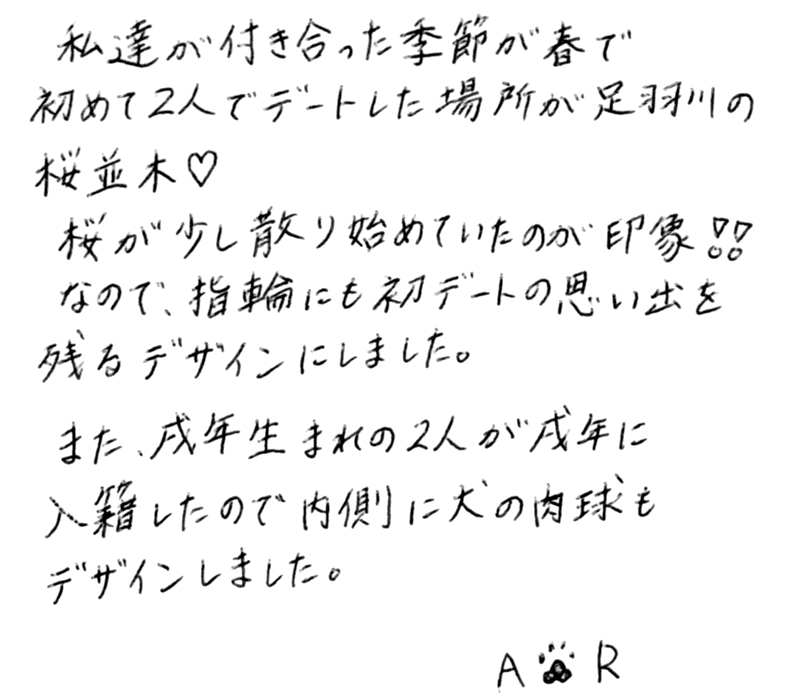 私達が付き合った季節が春で
初めて2人でデートした場所が足羽川の
桜並木♡
桜が少し散り始めていたのが印象!!
なので、指輪にも初デートの思い出を
残るデザインにしました。
また、戌年生まれの2人が戌年に
入籍したので内側に犬の肉球も
デザインしました。
A🐾R